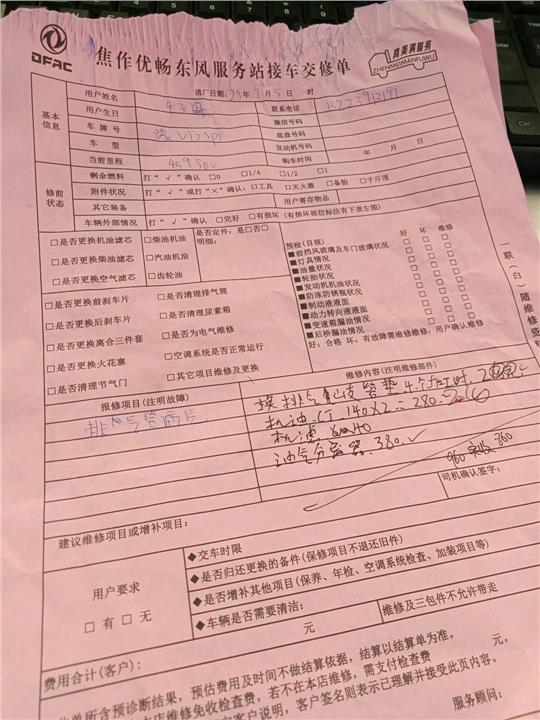 DFAC
焦作优畅东风服务站接车交修单
真美满服务
ZHENMEIMANFUWU
基本信息
用户姓名
进厂日期: 年 9月5日 时
用户生日
联系电话
车牌号
微信号码
车型
底盘号码
发动机号码
当前里程
购车时间 年 月 日
修前状态
剩余燃料 打“√”确认 □0 □1/4 □1/2 □1
附件状况 打“√”或打“×”确认:□工具 □灭火器 □备胎 □千斤顶
其它装备
用户寄存物品
车辆外部情况 打“√”确认 □完好 □有损坏(有损坏部位标注有下表左图)
□是否更换机油滤芯 □柴油机油
□是否更换柴油滤芯 □汽油机油
□是否更换空气滤芯 □齿轮油
是否定件: 是□否□
明细:
□是否更换前刹车片 □是否清理排气筒
□是否更换后刹车片 □是否清理尿素箱
□是否更换离合三件套 □是否为电气维修
□是否更换火花塞 □空调系统是否正常运行
□是否清理节气门 □其它项目维修及更换
预检(目视) 好 坏 维修
■前挡风玻璃及车门玻璃状况 □ □ □
■灯具情况 □ □ □
■油量状况 □ □ □
■轮胎状况 □ □ □
■发动机机油状况 □ □ □
■防冻防锈瓶状况 □ □ □
■制动液液面 □ □ □
■动力转向液液面 □ □ □
■变速箱漏油情况 □ □ □
■后桥漏油情况 □ □ □
好: 合格 坏: 有故障需维修维修: 用户确认维修
一联(白)随维修
报修项目(注明故障)
维修内容(注明维修部件)
排气管漏占
换排气歧管垫
机油 140X2=280
机滤
油气分离器 380 √
960 实收 960
司机确认签字:
建议维修项目或增补项目:
用户要求
□有 □无
◆交车时限
◆是否归还更换的备件(保修项目不退还旧件)
◆是否增补其他项目(保养、年检、空调系统检查、加装项目等)
◆车辆是否需要清洁: 维修及三包件不允许带走
费用合计(客户): 元
单所含预诊断结果,预估费用及时间不做结算依据,结算以结算单为准。
本店维修免收检查费,若不在本店维修,需支付检查费 元。
客户说明,客户签名则表示已理解并接受此页内容。
服务顾问: